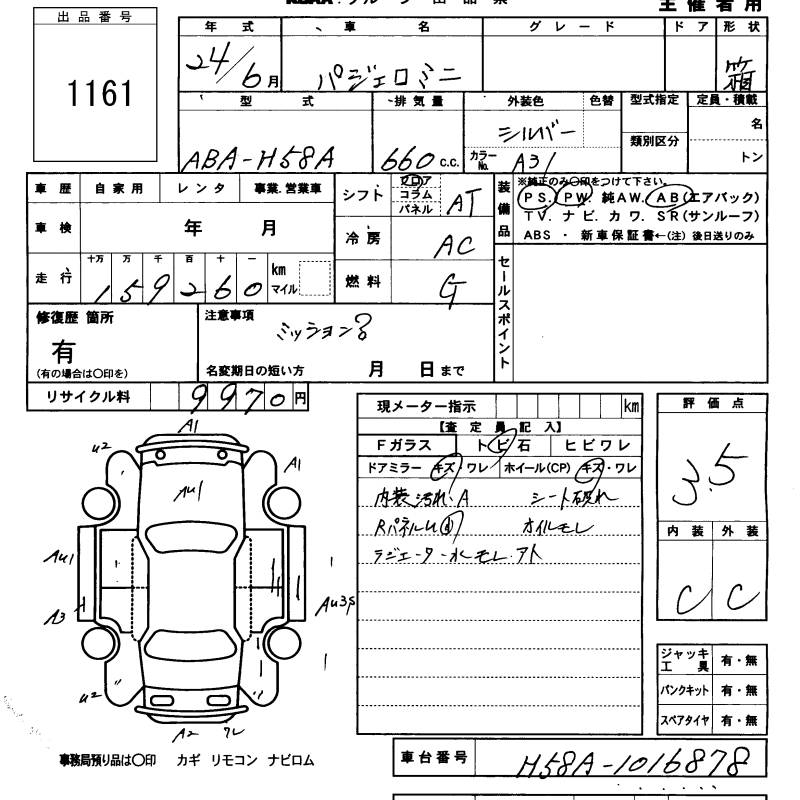 主催者用
出品番号
1161
年式 車名 グレード ドア 形状
24/6月 パジェロミニ 箱
型式 排気量 外装色 色替 型式指定 定員・積載
ABA-H58A 660c.c. シルバー カラーNo. A31 類別区分 名 トン
車歴 自家用 レンタ 事業.営業車
車検 年 月
走行 十万 万 千 百 十 一 km マイル
159260
シフト フロア コラム パネル AT
冷房 AC
燃料 G
装備品 ※純正のみ○印をつけて下さい。
PS. PW. 純AW. AB(エアバック)
TV. ナビ. カワ. SR(サンルーフ)
ABS ・ 新車保証書←(注) 後日送りのみ
セールスポイント
修復歴 箇所 注意事項
有 ミッション?
(有の場合は○印を) 名変期日の短い方 月 日まで
リサイクル料 9970円
現メーター指示 km
【査定員記入】
Fガラス トビ石 ヒビワレ
ドアミラー キズ・ワレ ホイール(CP) キズ・ワレ
内装汚れ・A シート破れ
オイルモレ
ラジエーター水モレ.アト
評価点
3.5
内装 外装
C C
A1
u2 A1
Au1
Au1
A3
u2 u2
A2 ワレ
ジャッキ工具 有・無
パンクキット 有・無
スペアタイヤ 有・無
事務局預り品は○印 カギ リモコン ナビロム
車台番号 H58A-1016878